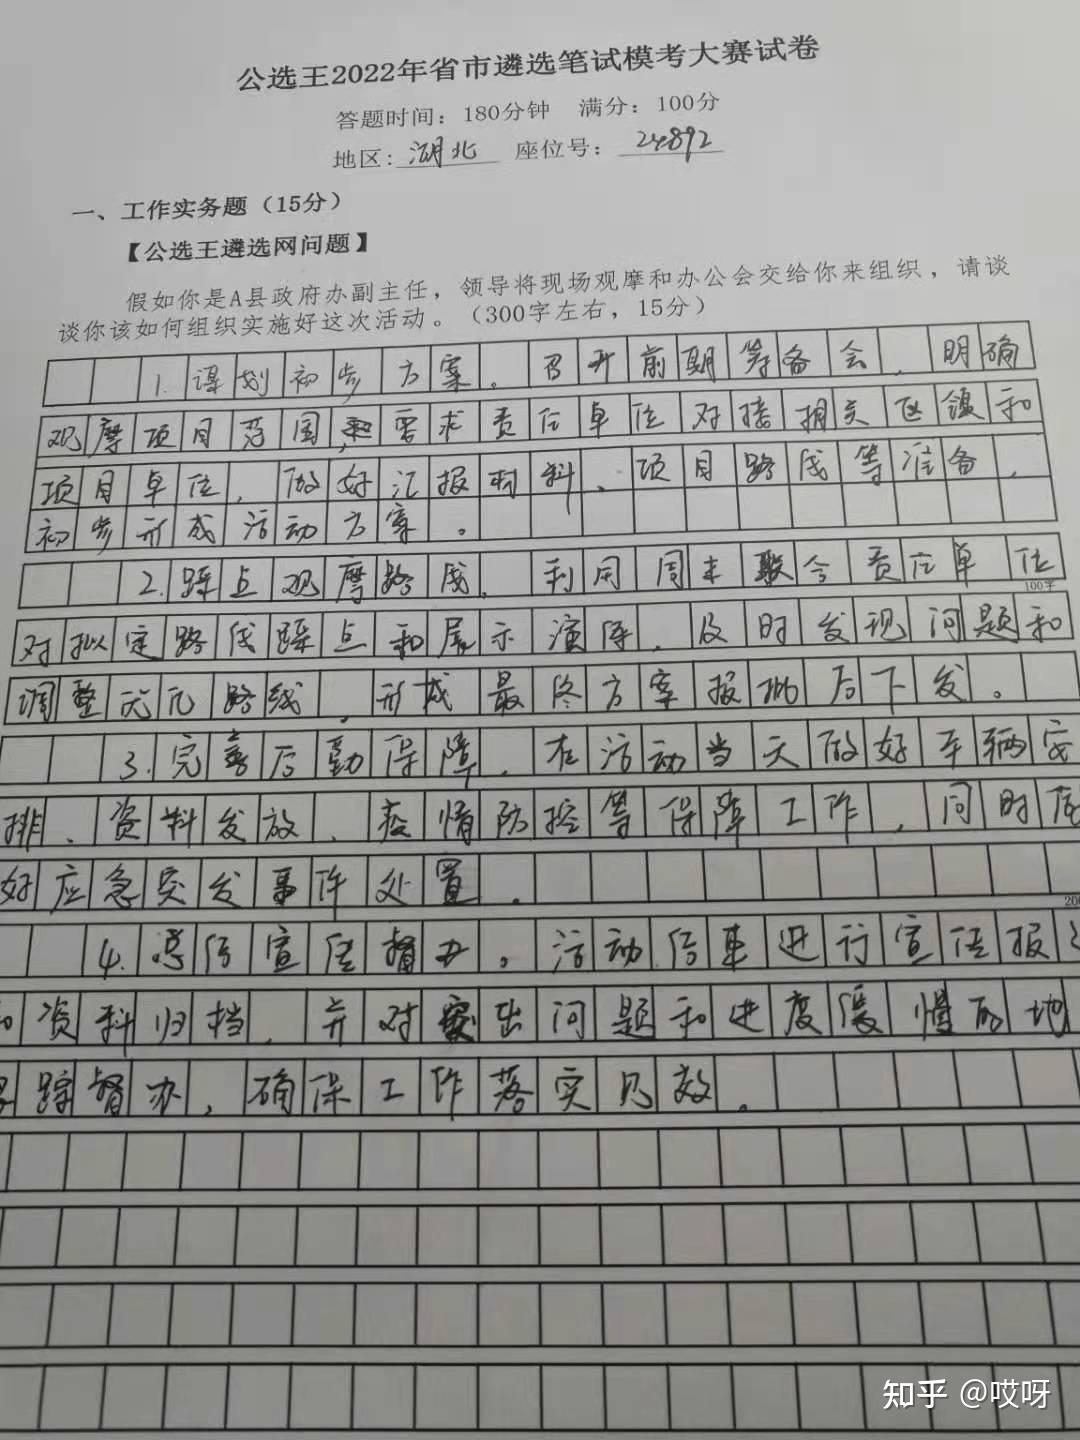 公选王2022年省市遴选笔试模考大赛试卷
答题时间：180分钟 满分：100分
地区：湖北 座位号：24892
一、工作实务题（15分）
【公选王遴选网问题】
假如你是A县政府办副主任，领导将现场观摩和办公会交给你来组织，请谈
谈你该如何组织实施好这次活动。（300字左右，15分）
1.谋划初步方案。召开前期筹备会，明确
观摩项目范围，要求责任单位对接相关区镇和
项目单位，做好汇报材料、项目路线等准备，
初步形成活动方案。
2.踩点观摩路线。利用周末联合责任单位
100字
对拟定路线踩点和展示演练，及时发现问题和
调整优化路线，形成最终方案报批后下发。
3.完善后勤保障。在活动当天做好车辆安
排、资料发放、疫情防控等保障工作，同时
好应急突发事件处置。
200
4.总结宣传督办。活动结束进行宣传报
和资料归档，并对突出问题和进度缓慢的地
跟踪督办，确保工作落实见效。
知乎 @哎呀